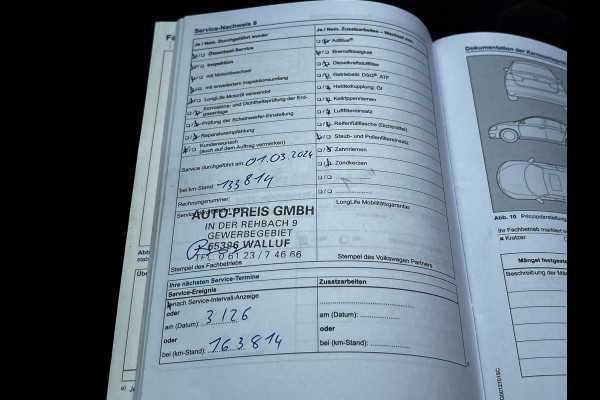 Service-Nachweis 8
Ja / Nein, Durchgeführt wurde:
Ölwechsel-Service
Inspektion
mit Motorölwechsel
mit erweitertem Inspektionsumfang
LongLife Motoröl verwendet
Korrosions- und Dichtheitsprüfung der Erd-
gasanlage
Prüfung der Scheinwerfer-Einstellung
Reparaturempfehlung
Kundenwunsch
(auch auf dem Auftrag vermerken)
Service durchgeführt am: 01.03.2024
bei km-Stand: 133814
Rechnungsnummer:
AUTO-PREIS GMBH
IN DER REHBACH 9
GEWERBEGEBIET
65396 WALLUF
TEL. 0 61 23 / 7 46 66
Stempel des Fachbetriebs
Ja / Nein, Zusatzarbeiten – Wechsel von:
AdBlue®
Bremsflüssigkeit
Dieselkraftstofffilter
Getriebeöl: DSG®, ATF
Haldexkupplung: Öl
Keilrippenriemen
Luftfiltereinsatz
Reifenfüllflasche (Dichtmittel)
Staub- und Pollenfiltereinsatz
Zahnriemen
Zündkerzen
LongLife Mobilitätsgarantie:
Stempel des Volkswagen Partners
Ihre nächsten Service-Termine
Service-Ereignis
nach Service-Intervall-Anzeige
oder
am (Datum): 3/26
oder
bei (km-Stand): 163.814
Zusatzarbeiten
am (Datum):
oder
bei (km-Stand):
Dokumentation der
Abb. 10 Prinzipdarstellung
Ihr Fachbetrieb markiert
Kratzer
Mängel festgeste
Beschreibung der Män